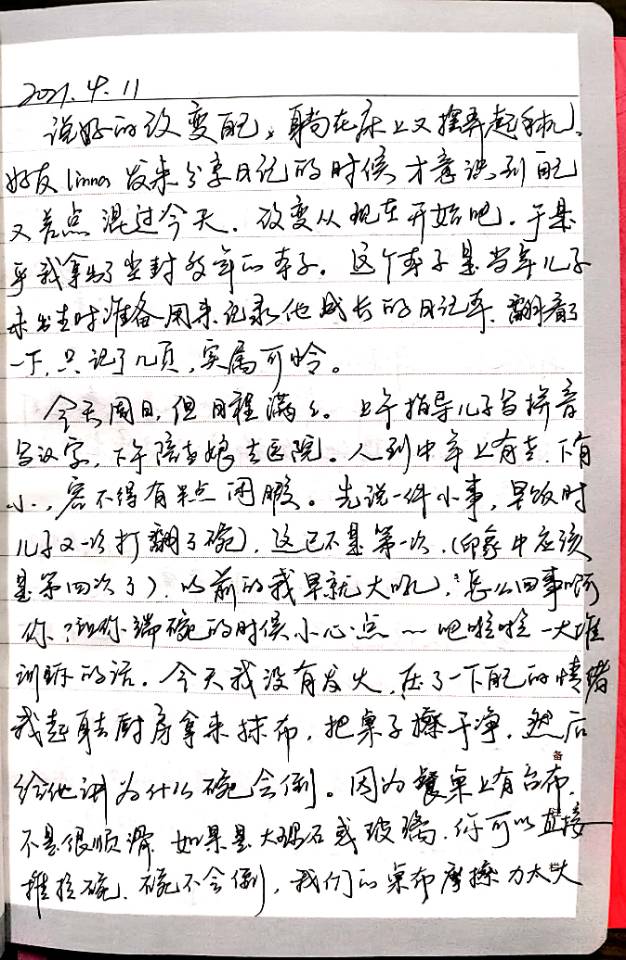 2021.4.11
说好的改变自己,躺在床上又摆弄起手机、
好友linna发来分享日记的时候才意识到自己
又差点混过今天。改变从现在开始吧。于是
乎我拿出了尘封多年的本子。这个本子是当年儿子
未出生时准备用来记录他成长的日记本、翻看了
一下,只记了几页,实属可怜。
今天周日,但日程满满。上午指导儿子写拼音
写汉字,下午陪老娘去医院。人到中年上有老、下有
小、,容不得有半点闲暇。先说一件小事,早饭时
儿子又一次打翻了碗,这已不是第一次,(印象中应该
是第四次了)、以前的我早就大吼,:怎么回事啊
你?让你端碗的时候小心点~吧啦啦一大堆
训斥的话。今天我没有发火,压了一下自己的情绪
我起身去厨房拿来抹布,把桌子擦干净,然后
备
给他讲为什么碗会倒。因为餐桌上有台布,
不是很顺滑 如果是大理石或玻璃、你可以直接
推拉碗、碗不会倒,我们的桌布摩擦力太大